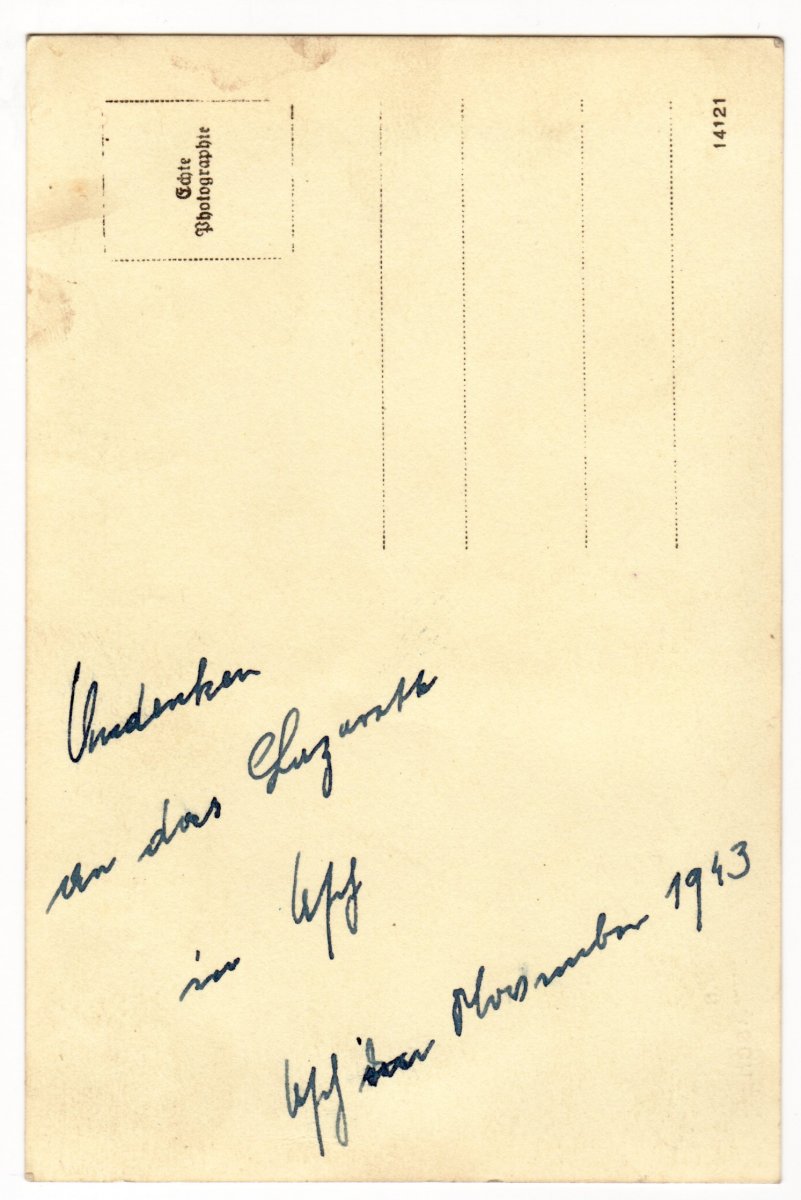 Echte
Photographie
14121
Andenken
an das Lazarett
in Usch
Usch November 1943